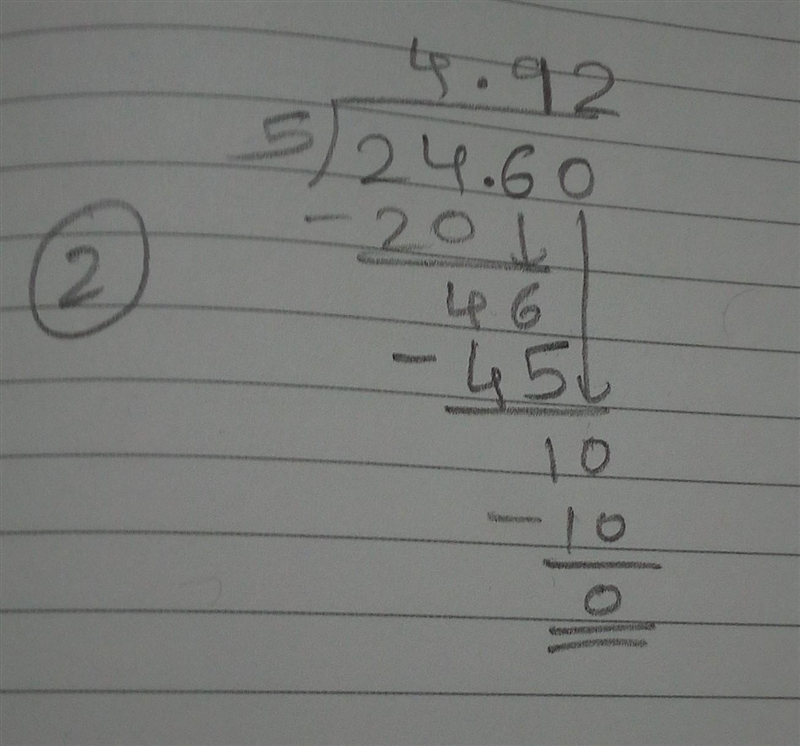 4.92
5)24.60
-20↓
②
46
-45↓
10
-10
0